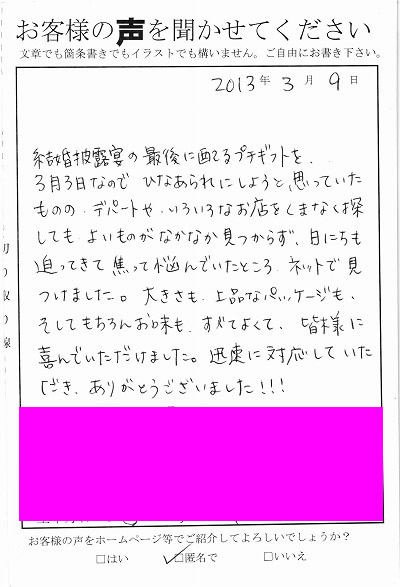 お客様の声を聞かせてください
文章でも箇条書きでもイラストでも構いません。ご自由にお書き下さい。
2013年 3月 9日
結婚披露宴の最後に配るプチギフトを、
3月3日なので ひなあられにしようと思っていた
ものの、デパートや、いろいろなお店をくまなく探
しても、よいものがなかなか見つからず、日にちも
迫ってきて 焦って悩んでいたところ ネットで見
つけました。大きさも、上品なパッケージも、
そしてもちろんお味も、すべてよくて、皆様に
喜んでいただけました。迅速に対応していた
だき、ありがとうございました!!!
切り取り線
お客様の声をホームページ等でご紹介してよろしいでしょうか?
□はい ☑匿名で □いいえ